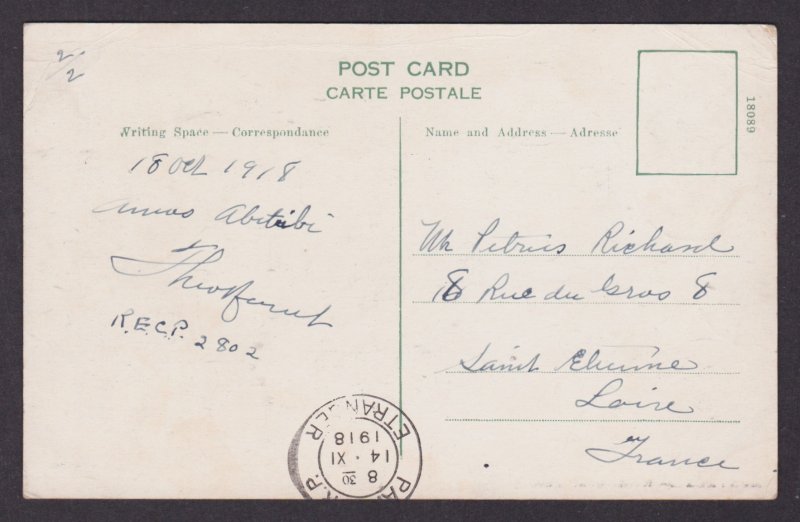 2/2
POST CARD
CARTE POSTALE
18089
Writing Space — Correspondance
Name and Address — Adresse
18 Oct 1918
Amos Abitibi
R.E.C.P. 2802
Mr Petrus Richard
8 Rue du Gros 8
Saint Etienne
Loire
France
ETRANGER
1918
14 · XI
8 30